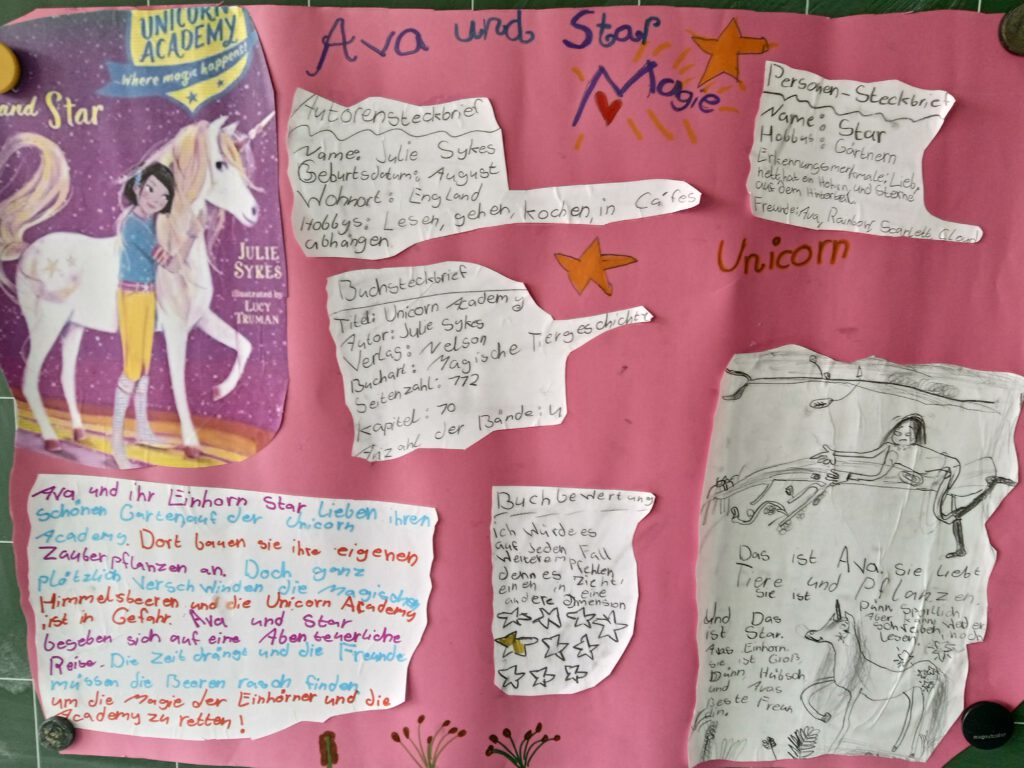 UNICORN
ACADEMY
Where magic happens!
and Star
JULIE
SYKES
illustrated by
LUCY
TRUMAN
Ava und Star
Magie
Autorensteckbrief
Name: Julie Sykes
Geburtsdatum: August
Wohnort: England
Hobbys: Lesen, gehen, kochen, in Cafes
abhängen.
Personen-Steckbrief
Name: Star
Hobbys: Gärtnern
Erkennungsmerkmale: Lieb,
nett, hat ein Hohrn, und Sterne
auf dem Hinterteil.
Freunde: Ava, Rainbow, Scarlett, Cloud
Unicorn
Buchsteckbrief
Titel: Unicorn Academy
Autor: Julie Sykes
Verlag: Nelson
Buchart: Magische Tiergeschichte
Seitenzahl: 112
Kapitel: 10
Anzahl der Bände: 4
Ava und ihr Einhorn Star lieben ihren
schönen Garten auf der Unicorn
Academy. Dort bauen sie ihre eigenen
Zauberpflanzen an. Doch ganz
plötzlich verschwinden die magischen
Himmelsbeeren und die Unicorn Academy
ist in Gefahr. Ava und Star
begeben sich auf eine Abenteuerliche
Reise. Die Zeit drängt und die Freunde
müssen die Beeren rasch finden
um die Magie der Einhörner und die
Academy zu retten!
Buchbewertung
ich würde es
auf jeden Fall
weiterempfehlen
denn es zieht
einen in eine
andere dimension
Das ist Ava. sie liebt
Tiere und Pflanzen.
sie ist
Dünn, Sportlich
Aber kann weder
schreiben noch
lesen.
und Das
ist Star.
Avas Einhorn
sie ist Groß,
Dünn Hübsch
und Avas
beste Freun
din.